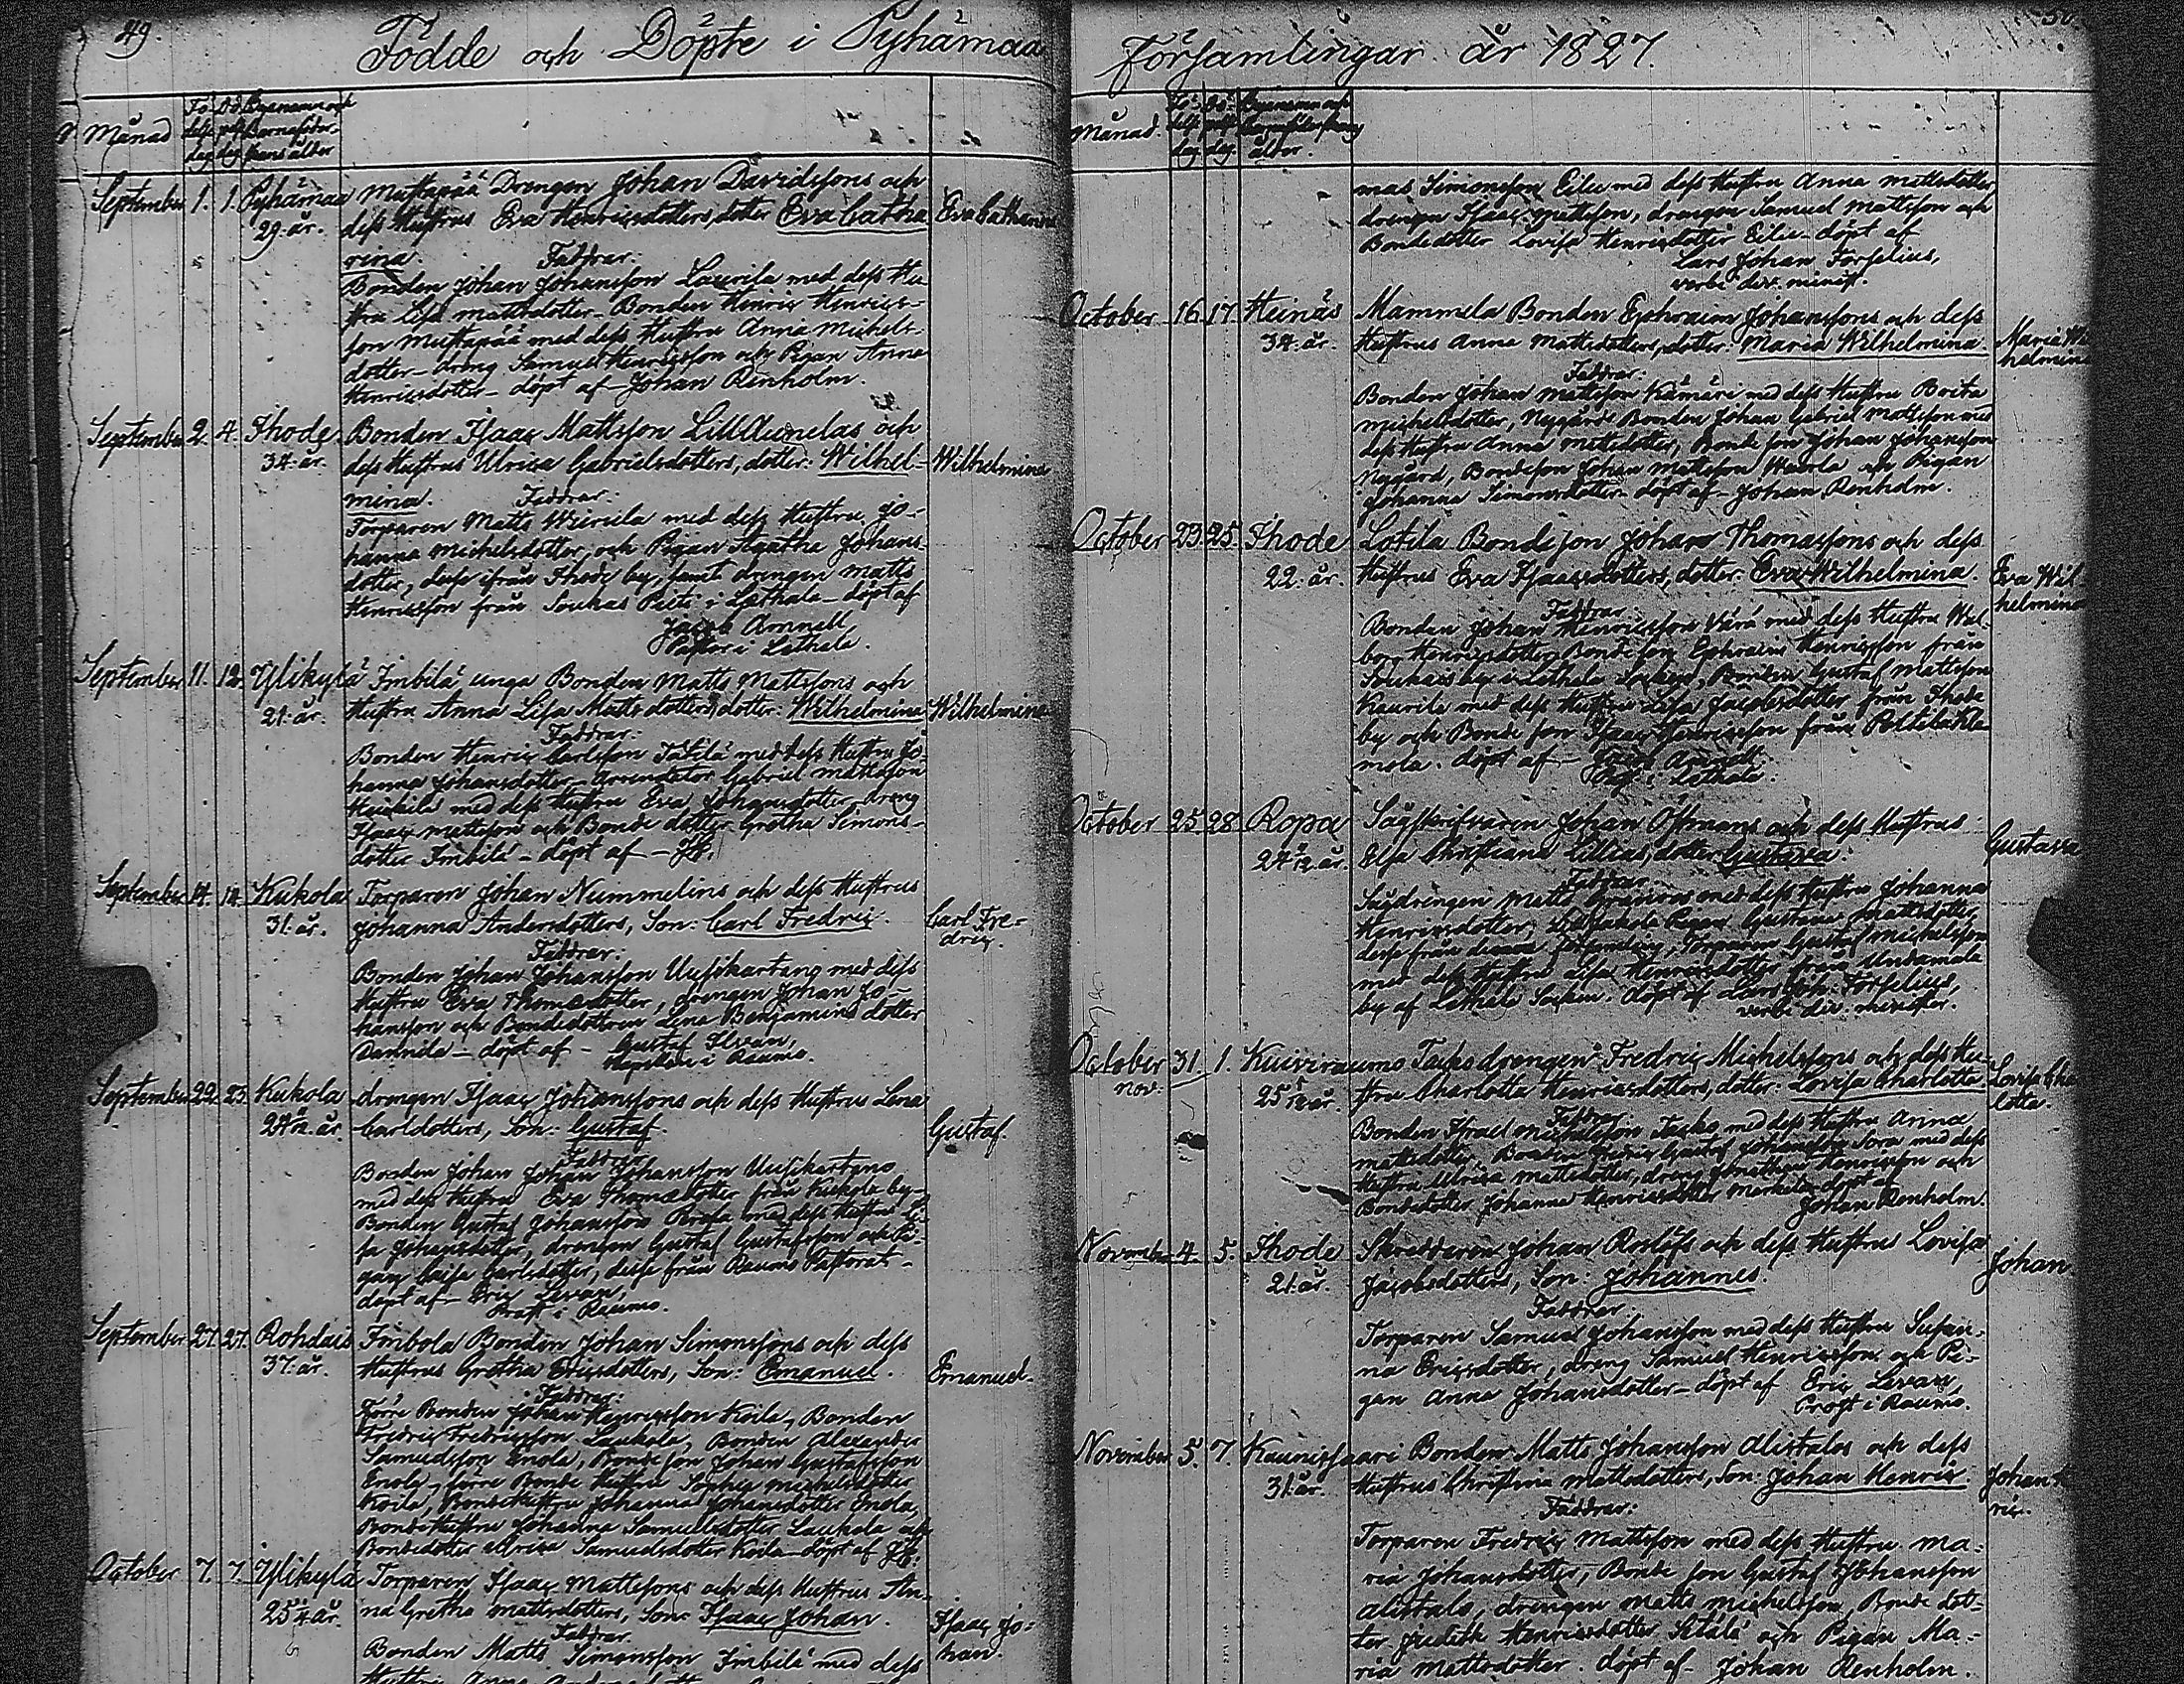 49.
Födde och Döpte i Pyhämaa
Månad
Fö-
delse
dag
Dö-
pelse
dag
Byanamn och
Barnaföder-
skans ålder
September 1. 1. Pyhämaa Mustapää Drengen Johan Davidssons och
29. år. dess Hustrus Eva Henricsdotters, dotter Eva Catha Eva Catharina
rina. Faddrar:
Bonden Johan Johansson Laurila med dess Hu-
stru Lisa Mattsdotter - Bonden Henric Henrics-
son Mustapää med dess Hustru Anna Michels-
dotter - dreng Samuel Henricsson och Pigan Anna
Henricsdotter - döpt af Johan Renholm.
September 2. 4. Ihode Bonden Isaac Mattsson Lill Aunelas och
34. år. dess Hustrus Ulrica Gabrielsdotters, dotter: Wilhel- Wilhelmina
mina. Faddrar:
Torparen Matts med dess Hustru Jo-
hanna Michelsdotter, och Pigan Agatha Johans-
dotter, desse ifrån Ihode by, samt drengen Matts
Henricsson från Soukas i Lethala - döpt af
Jacob Arnnell
Pastor i Lethala.
September 11. 12. Ylikylä Imbilä unga Bonden Matts Mattssons och
21. år. Hustru Anna Lisa Mattsdotters, dotter: Wilhelmina Wilhelmina
Faddrar:
Bonden Henric Carlsson med dess Hustru Jo-
hanna Johansdotter - Arrendator Gabriel Mattsson
Heikilä med dess Hustru Eva Johansdotter, dreng
Isaac Mattsson och Bonde dotter Gretha Simons-
dotter Imbilä - döpt af - JR.
September 14. 14. Kukola Torparen Johan Nummelins och dess Hustrus
31. år. Johanna Andersdotters, Son: Carl Fredric. Carl Fre-
dric.
Faddrar:
Bonden Johan Johansson Uusikartano med dess
Hustru Eva Thomædotter, drengen Johan Jo-
hansson och Bondedottren Lena Benjamins dotter
Dannila - döpt af - Gustaf Ilvan,
Capellan i Raumo.
September 22. 23. Kukola drengen Isaac Johanssons och dess Hustrus Lena
år. Carlsdotters, Son: Gustaf. Gustaf.
Faddrar
Bonden Johan Johan Johansson Uusikartano
med dess Hustru Eva Thomædotter från Kukola by -
Bonden Gustaf Johansson med dess Hustru Li-
sa Johansdotter, drengen Gustaf Gustafsson och Pi-
gan Caisa Carlsdotter, desse från Raumo Pastorat -
döpt af - Eric Levan,
Prost i Raumo.
September 27. 27. Rohdais Finbola Bonden Johan Simonssons och dess
37. år. Hustrus Gretha Ericsdotters, Son: Emanuel. Emanuel.
Faddrar:
Förre Bonden Johan Henricsson Koila, Bonden
Fredric Fredricsson Laukola, Bonden Alexander
Samuelsson Enola, Bonde son Johan Gustafsson
Enola - förre Bonde Hustru Sophia Michelsdotter
Koila, Bondehustru Johanna Johansdotter Enola,
Bondehustru Johanna Samuelsdotter Laukola och
Bondedotter Ulrica Samuelsdotter Koila - döpt af JR.
October 7. 7. Ylikylä Torparen Isaac Mattssons och dess Hustrus An-
år. na Gretha Mattsdotters, Son: Isaac Johan. Isaac Jo-
han.
Faddrar.
Bonden Matts Simonsson Imbilä med dess
Hustru Anna
Församlingar år 1827.
50
Månad
Fö-
delse
dag
Dö-
pelse
dag.
Byanamn och
ålder.
mas Simonsson Eilu med dess Hustru Anna Mattsdotter,
drengen Isaac Mattsson, drengen Samuel Mattsson och
Bondedotter Lovisa Henricsdotter Eilu - döpt af
Lars Johan Forselius,
verbi div. minist.
October 16 17 Heinäs Mammila Bonden Ephraim Johanssons och dess
34. år. Hustrus Anna Mattsdotters, dotter: Maria Wilhelmina. Maria Wil
helmina
Faddrar:
Bonden Johan Mattsson Kämäri med dess Hustru Brita
Michelsdotter, Nygård Bonden Johan Gabriel Mattsson med
dess Hustru Anna Mattsdotter, Bonde son Johan Johansson
Nygård, Bondeson Johan Mattsson och Pigan
Johanna Simonsdotter - döpt af - Johan Renholm.
October 23 25 Ihode Lotila Bondeson Johan Thomassons och dess
22. år. Hustrus Eva Isaacsdotters, dotter: Eva Wilhelmina. Eva Wil
helmina
Faddrar:
Bonden Johan Henricsson Värä med dess Hustru Wal-
borg Henricsdotter, Bonde son Ephraim Henricsson från
Soukais by i Lethala Socken, Bonden Gustaf Mattsson
Kaurila med dess Hustru Lisa Jacobsdotter från Ihode
by och Bonde son Isaac Henricsson från
döpt af - Jacob Arnnell
i Lethala.
October 25 28 Ropa Johan Östmans och dess Hustrus
år. Elsa Christiana Lillias, dotter Gustava. Gustava
Faddrar
Sågdrengen Matts Granroos med dess Hustru Johanna
Henricsdotter, Pigan Gustava Mattsdotter,
desse från denna församling, Torparen Gustaf Michelsson
med dess Hustru Lisa Henricsdotter från Undamala
by af Lethala Socken. döpt af Lars Joh: Forselius,
verbi div. minister.
October 31. 1. Kuiviraumo Tasks drengen Fredric Michelssons och dess Hu-
nov: år. stru Charlotta Henricsdotters, dotter: Lovisa Charlotta Lovisa Cha
lotta.
Faddrar:
Bonden Israel Michelsson Tasks med dess Hustru Anna
Mattsdotter, Bonden Fredric Gustaf Johansson Sora med dess
Hustru Ulrica Mattsdotter, dreng Jonathan Henricsson och
Bondedotter Johanna Henricsdotter Merkelä - döpt af
Johan Renholm.
November 4. 5. Ihode Skreddaren Johan Roslöfs och dess Hustru Lovisa
21. år. Jacobsdotters, Son: Johannes. Johan
Faddrar.
Torparen Samuel Johansson med dess Hustru Susan-
na Ericsdotter, dreng Samuel Henricsson och Pi-
gan Anna Johansdotter - döpt af Eric Levan,
Prost i Raumo.
November 5. 7. Kaunissaari Bonden Matts Johansson Alistalos och dess
31. år. Hustrus Christina Mattsdotters, Son: Johan Henric Johan H
ric.
Faddrar:
Torparen Fredric Mattsson med dess Hustru Ma-
ria Johansdotter, Bonde son Gustaf Johansson
Alistalo, drengen Matts Michelsson, Bonde dot-
ter Judith Henricsdotter Sitälä och Pigan Ma-
ria Mattsdotter. döpt af - Johan Renholm.